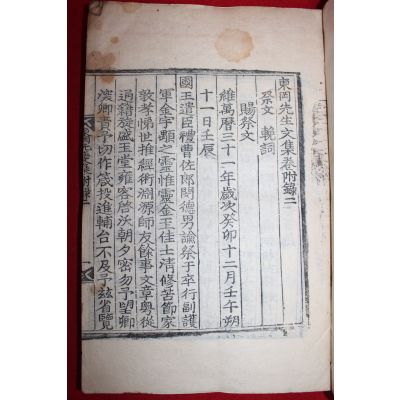 東岡先生文集卷附錄二
祭文 輓詞
賜祭文
維萬曆三十一年歲次癸卯十二月壬午朔
十一日壬辰
國王遣臣禮曹佐郎閔德男諭祭于卒行副護
軍金宇顒之靈惟靈金玉佳士清修苦節家
敦孝悌世推經術淵源師友餘事文章粤從
通籍旋盛玉堂雍容啓沃朝夕密勿予望卿
深卿責予切作箴投進輔台不及予玆省覽